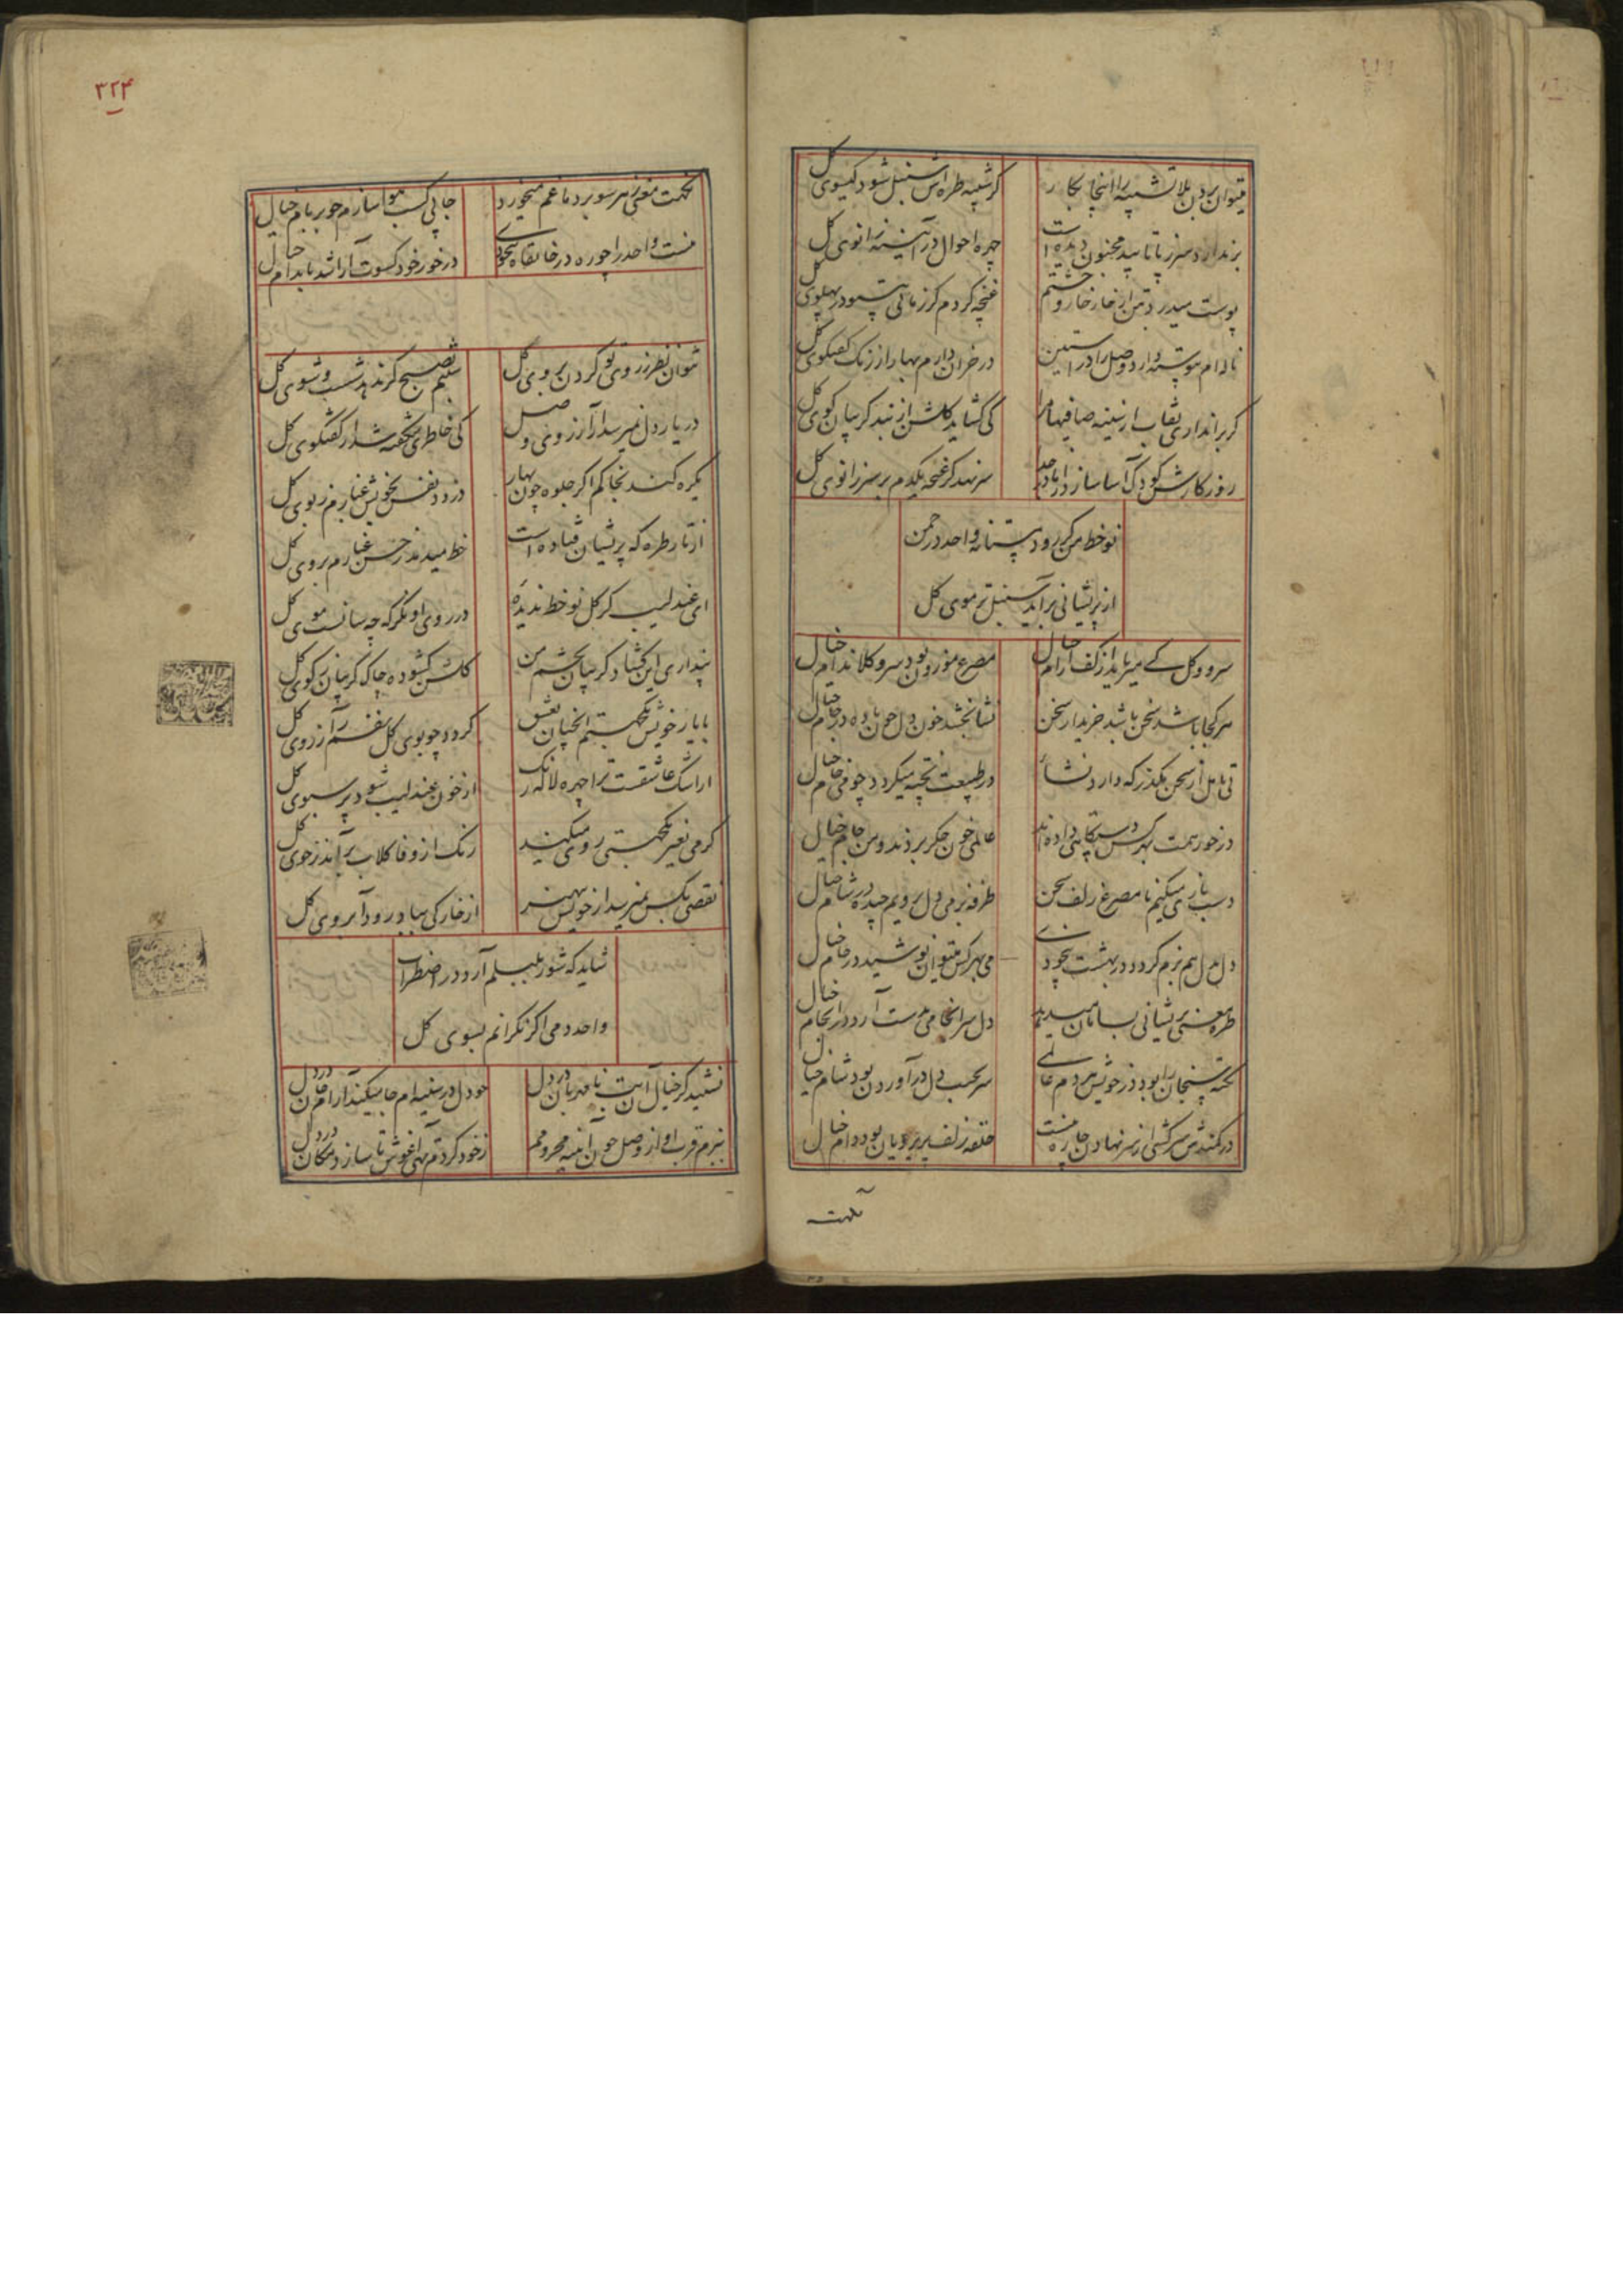 میتوان بردن بلا تشبیه را اینجا بکار
گر شبیه طره اش سنبل شود گیسوی گل
بر ندارد سر ز پا تا بید مجنون دیده است
چهره احوال در آئینه زانوی گل
پوست میدرد بتن از خار خار وحشتم
غنچه گردم گر زمانی در پهلوی گل
ناله ام پیوسته دارد وصل را در آستین
در خزان دارم بهار از رنگ گفتگوی گل
گر براندازی نقاب از سینه صافیها
کی گشاید گلشن از بند گریبان گوی گل
روزگارش کودک آسا ساز
سر نهد گر غنچه یکدم بر سر زانوی گل
نوخط من گر رود مستانه واحد در چمن
از پریشانی برآید سنبل تر موی گل
سرو و گل کے میرباید از کف آرام خیال
مصرع موزون بود سرو گلاندام خیال
هر کجا باشد سخن باشد خریدار سخن
نشا بخشد خون دل چون باده در جام خیال
بی تامل از سخن مگذر که دارد نشاء
در طبیعت پخته میگردد چو می خام خیال
در خور همت بهر کس دستگاهی داده اند
عالمی خون جگر بردند و من جام خیال
دست بازی میکنیم با مصرع زلف سخن
طرفه بزمی دل برویم چیده در شام خیال
دل بدل هم بزم گردد در بهشت بیخودی
می بهر کس میتوان نوشید در جام خیال
طره معنی پریشانی بسامان میدهد
دل سرانجامی بدست آرد در انجام خیال
نکته سنجان را بود در خویش هر دم عالمی
سر بجیب دل در آوردن بود شام خیال
در کمندش سرکشی از سر نهادن چاره نیست
حلقه زلف پریرویان بود دام خیال
نکهت
۳۲۴
نکهت معنی بهر سو برد ما غم میخورد
جائی کسب هوا سازم چو بر بام خیال
نیست واحد را چو ره در خانقاه بیخودی
در خور خود کسوت آرا شد باندام خیال
نتوان نظر ز روی تو کردن بروی گل
شبنم بصبح گر ندهد شست و شوی گل
در یار دل نمیرسد از آرزوی وصل
کی خاطری شگفته شد از گفتگوی گل
یکره کند بخاکم اگر جلوه چون بهار
دزدد نفس بخویش غبارم ز بوی گل
از تار طره که پریشان فتاده است
خط میدمد ز حسن غبارم بروی گل
ای عندلیب گر گل نوخط ندیده
در روی او نگر که چه سانست موی گل
پنداری این گشاد گریبان بچشم من
گلشن گشوده چاک گریبان کوی گل
با یار خویش نکهتم آنچنان بعشق
کرده چو بوی گل نفسم آرزوی گل
از اشک عاشقست ترا چهره لاله رنگ
از خون عندلیب شود پر سبوی گل
گرمی بغیر نکهتی رو میکنید
رنگ از وفا گلاب برآید ز جوی گل
نقصی بکس نمیرسد از خویش بهتر
از خار کی بباد رود آبروی گل
شاید که شور بلبلم آرد در اضطراب
واحد دمی اگر نگرانم بسوی گل
نشیند گر خیال آن بت نامهربان در دل
چو دل در سینه ام جا میکند آرام جان در دل
ببزم قرب او از وصل چون آئینه محرومم
ز خود کردم تهی آغوش تا سازد مکان در دل